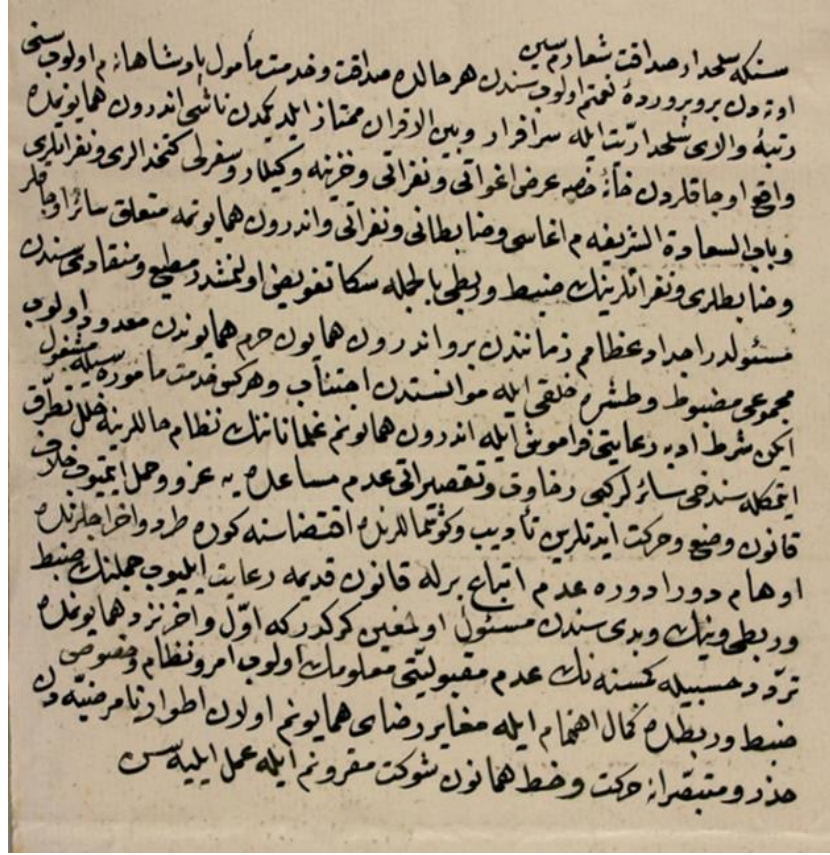 سنكه سلحدار صداقت شعارم سين
اوته دن برو پرورده نعمتم اولوب سندن هر حالده صداقت و خدمت مأمول پادشاهانه م اولوب سنی
رتبهٔ والای سلحداریت ایله سرافراز و بین الاقران ممتاز ایلدیكمدن ناشی اندرون همایونمده
واقع اوجاقلردن خانهٔ خاصه عرض اغواتی و نفراتی و خزینه و كیلار و سفرلی كتخدالری و نفراتلری
و باب السعادة الشریفه م اغاسی و ضابطانی و نفراتی و اندرون همایونمه متعلق سائر اوجاقلر
و ضابطلری و نفراتلرینك ضبط و ربطی بالجمله سكا تفویض اولنمشدر مطیع و منقادی سندن
مسئولدر اجداد عظامم زماننندن برو اندرون همایون حرم همایوندن معدود اولوب
مجموعی مضبوط و طشره خلقی ایله موانستدن اجتناب و هركس خدمت مأموره سیله مشغول
ایكن شرط ادبه رعایتی فراموش ایله اندرون همایونم غلماناتنك نظام حاللرینه خلل تطرق
ایتمكله سندخی سائرلر كبی رخاوت و تقصیراتی عدم مساعده یه عزو و حمل ایتمیوب خلاف
قانون وضع و حركت ایدنلرین تأدیب و كوشماللرنده اقتضاسنه كوره طرد و اخراجلرنده
اوهام دورادوره عدم اتباع برله قانون قدیمه رعایت ایلیوب جمله نك ضبط
و ربطی و نیك و بدی سندن مسئول اولمغین كركدركه اول و اخر نزد همایونمده
تردد حسبیله كمسنه نك عدم مقبولیتی معلومك اولوب امر و نظام و خصوصی
ضبط و ربطده كمال اهتمام ایله مغایر رضای همایونم اولان اطوار نامرضیه دن
حذر و متبصرانه حركت و خط همایون شوكت مقرونم ایله عمل ایلیه سن